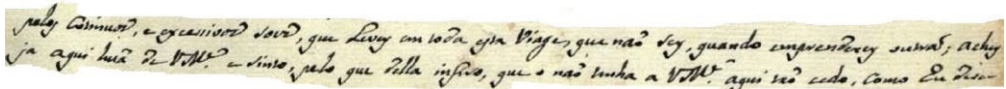 pelos Continuos, e excessivos soes, que Levey em toda essa Viage, que não sey, quando emprenderey outra; achey
ja aqui huã de VMce. e sinto, pelo que della infiro, que o não tenha a VMce. aqui tão cedo, como Eu dese